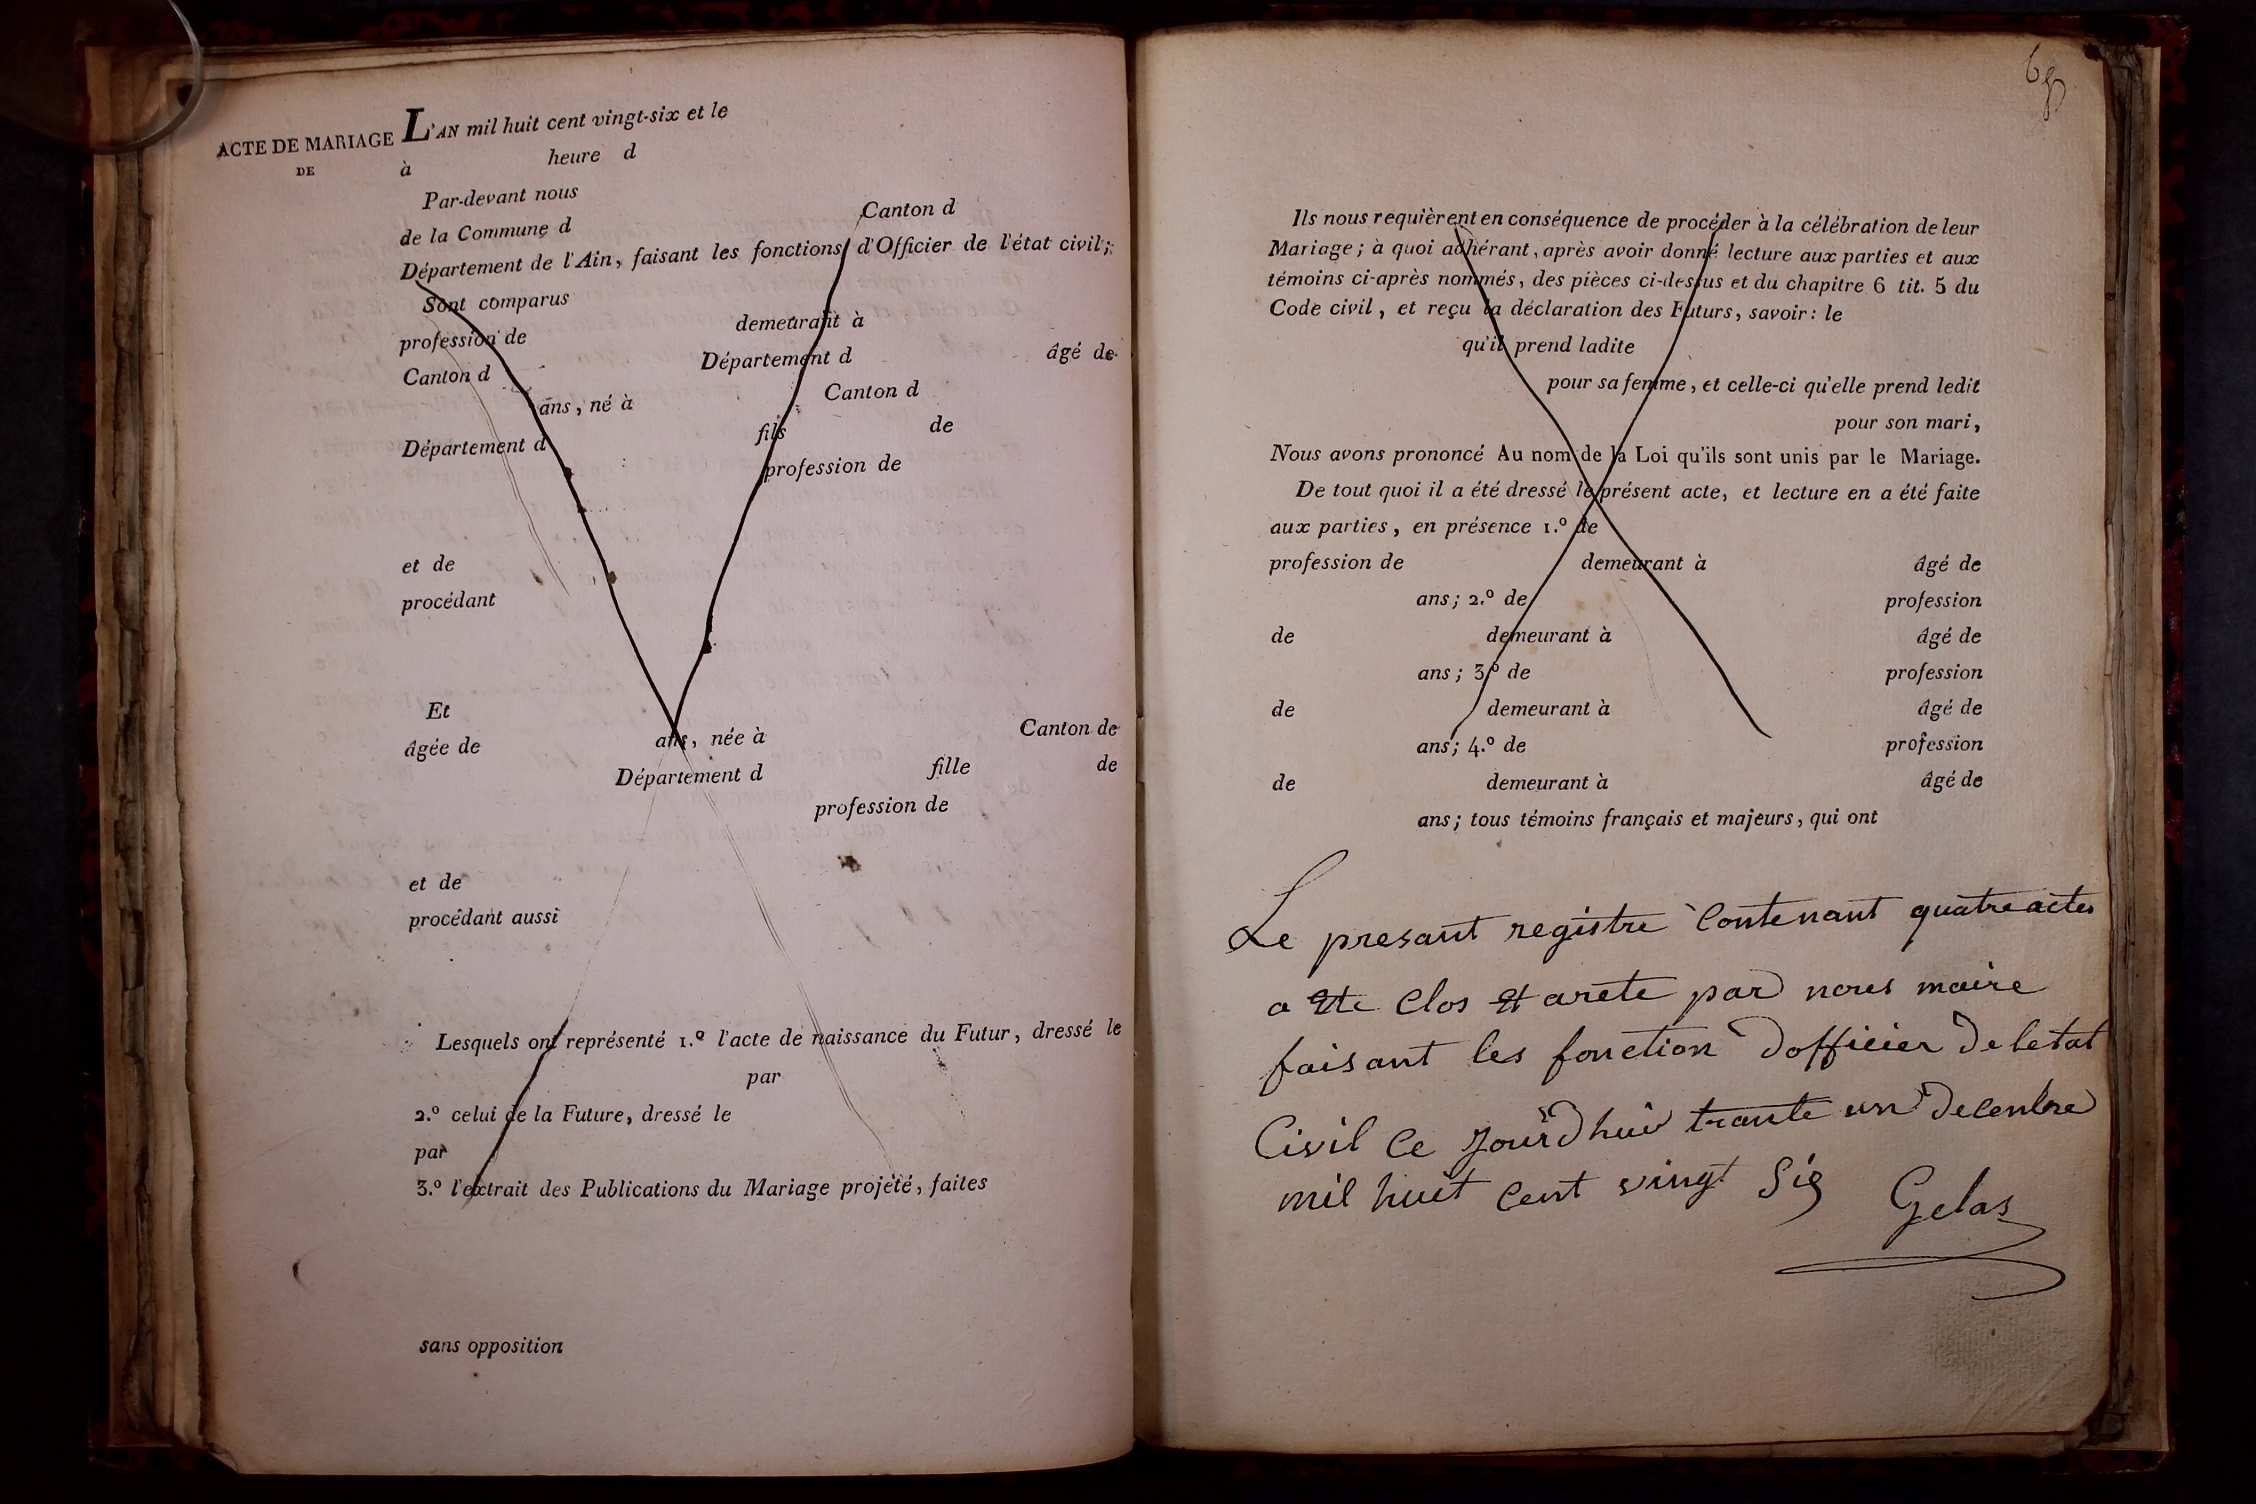 ACTE DE MARIAGE
DE
L'AN mil huit cent vingt-six et le
à heure d
Par-devant nous
de la Commune d Canton d
Département de l'Ain, faisant les fonctions d'Officier de l'état civil;
Sont comparus
profession de demeurant à
Canton d Département d âgé de
ans, né à Canton d
Département d fils de
profession de
et de
procédant
Et
âgée de ans, née à Canton de
Département d fille de
profession de
et de
procédant aussi
Lesquels ont représenté 1.º l'acte de naissance du Futur, dressé le
par
2.º celui de la Future, dressé le
par
3.º l'extrait des Publications du Mariage projeté, faites
sans opposition
Ils nous requièrent en conséquence de procéder à la célébration de leur
Mariage; à quoi adhérant, après avoir donné lecture aux parties et aux
témoins ci-après nommés, des pièces ci-dessus et du chapitre 6 tit. 5 du
Code civil, et reçu la déclaration des Futurs, savoir: le
qu'il prend ladite
pour sa femme, et celle-ci qu'elle prend ledit
pour son mari,
Nous avons prononcé Au nom de la Loi qu'ils sont unis par le Mariage.
De tout quoi il a été dressé le présent acte, et lecture en a été faite
aux parties, en présence 1.º de
profession de demeurant à âgé de
ans; 2.º de profession
de demeurant à âgé de
ans; 3.º de profession
de demeurant à âgé de
ans; 4.º de profession
de demeurant à âgé de
ans; tous témoins français et majeurs, qui ont
Le presant registre Contenant quatre actes
a ete Clos et arete par nous maire
faisant les fonction dofficier De letat
Civil Ce Jourdhui trante un Decenbre
mil huit Cent vingt Sig Gelas